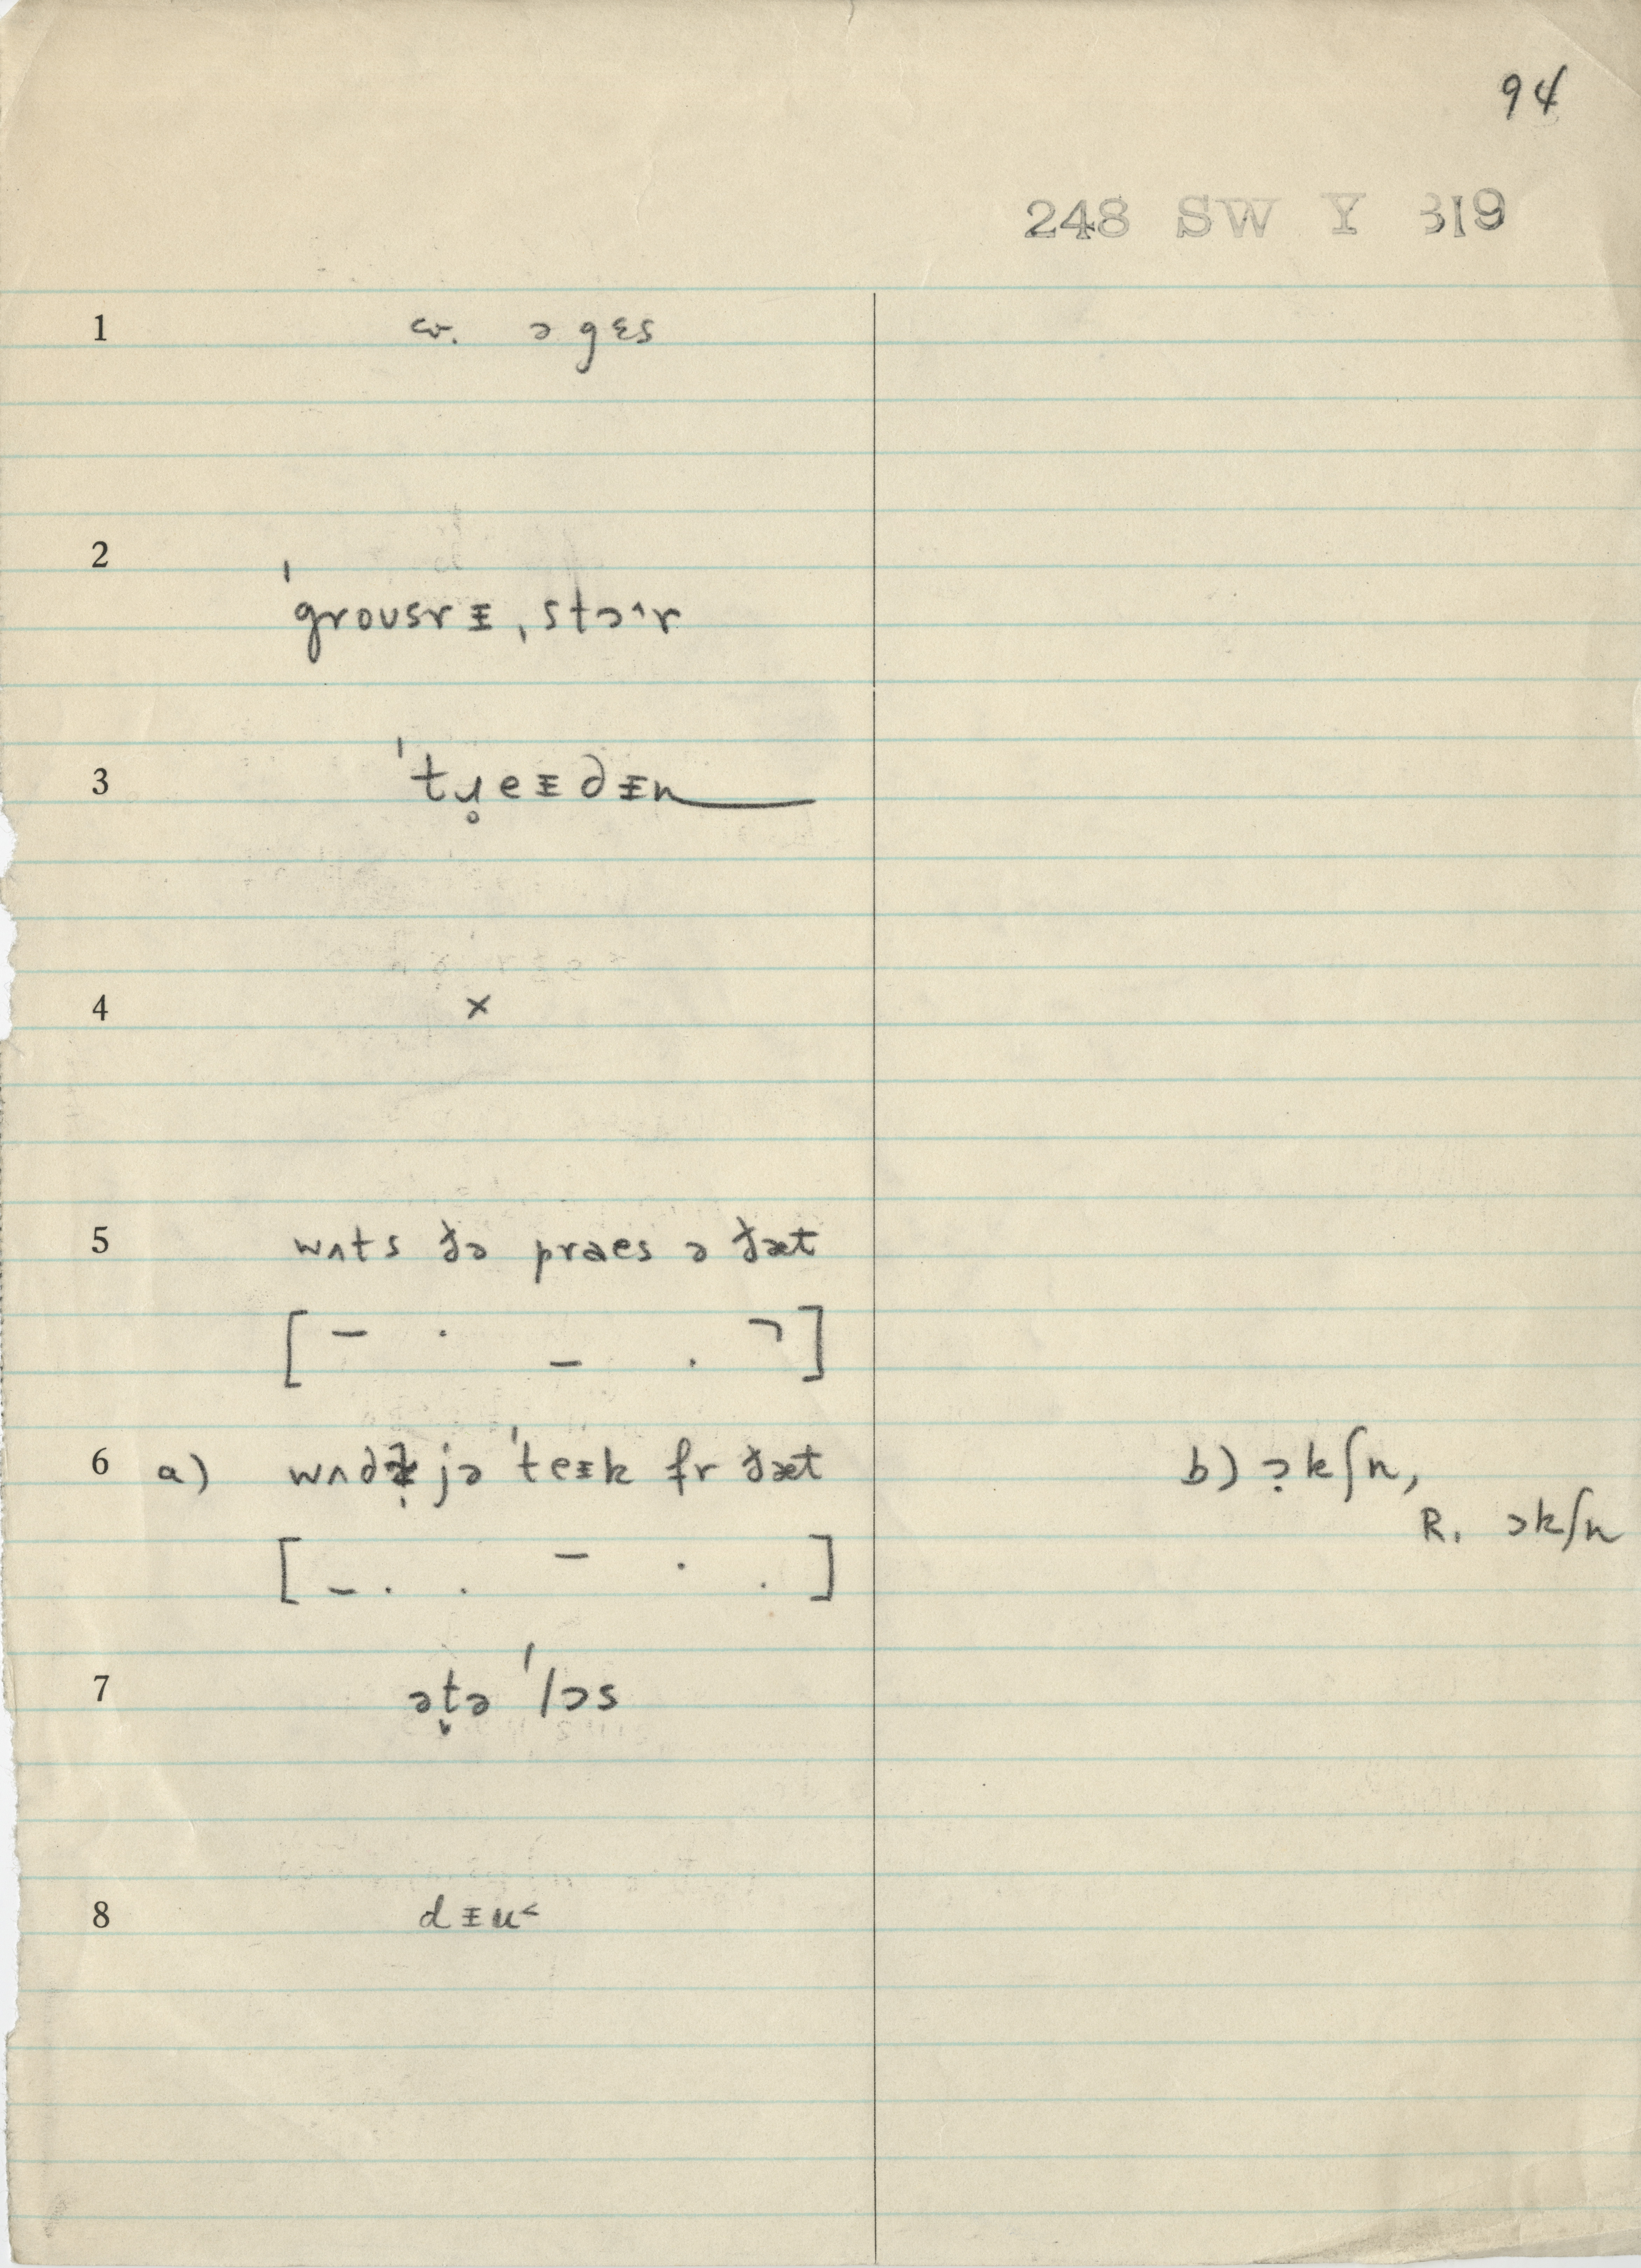 94
248 SW Y 319
1 cv. ə gɛs
2 ˈgroʊsrɪ̵ ˌstɔ˄r
3 ˈtɹ̥eɪ̵dɪ̵n
4 ×
5 wʌts ðə praes ə ðæt
[ – · – · ¬ ]
6 a) wʌd jə ˈteɪ̵k fr ðæt b) ɔ̣kʃn,
R. ɔkʃn
[ – · · – · · ]
7 ət̬ə ˈlɔs
8 dɪ̵u˂